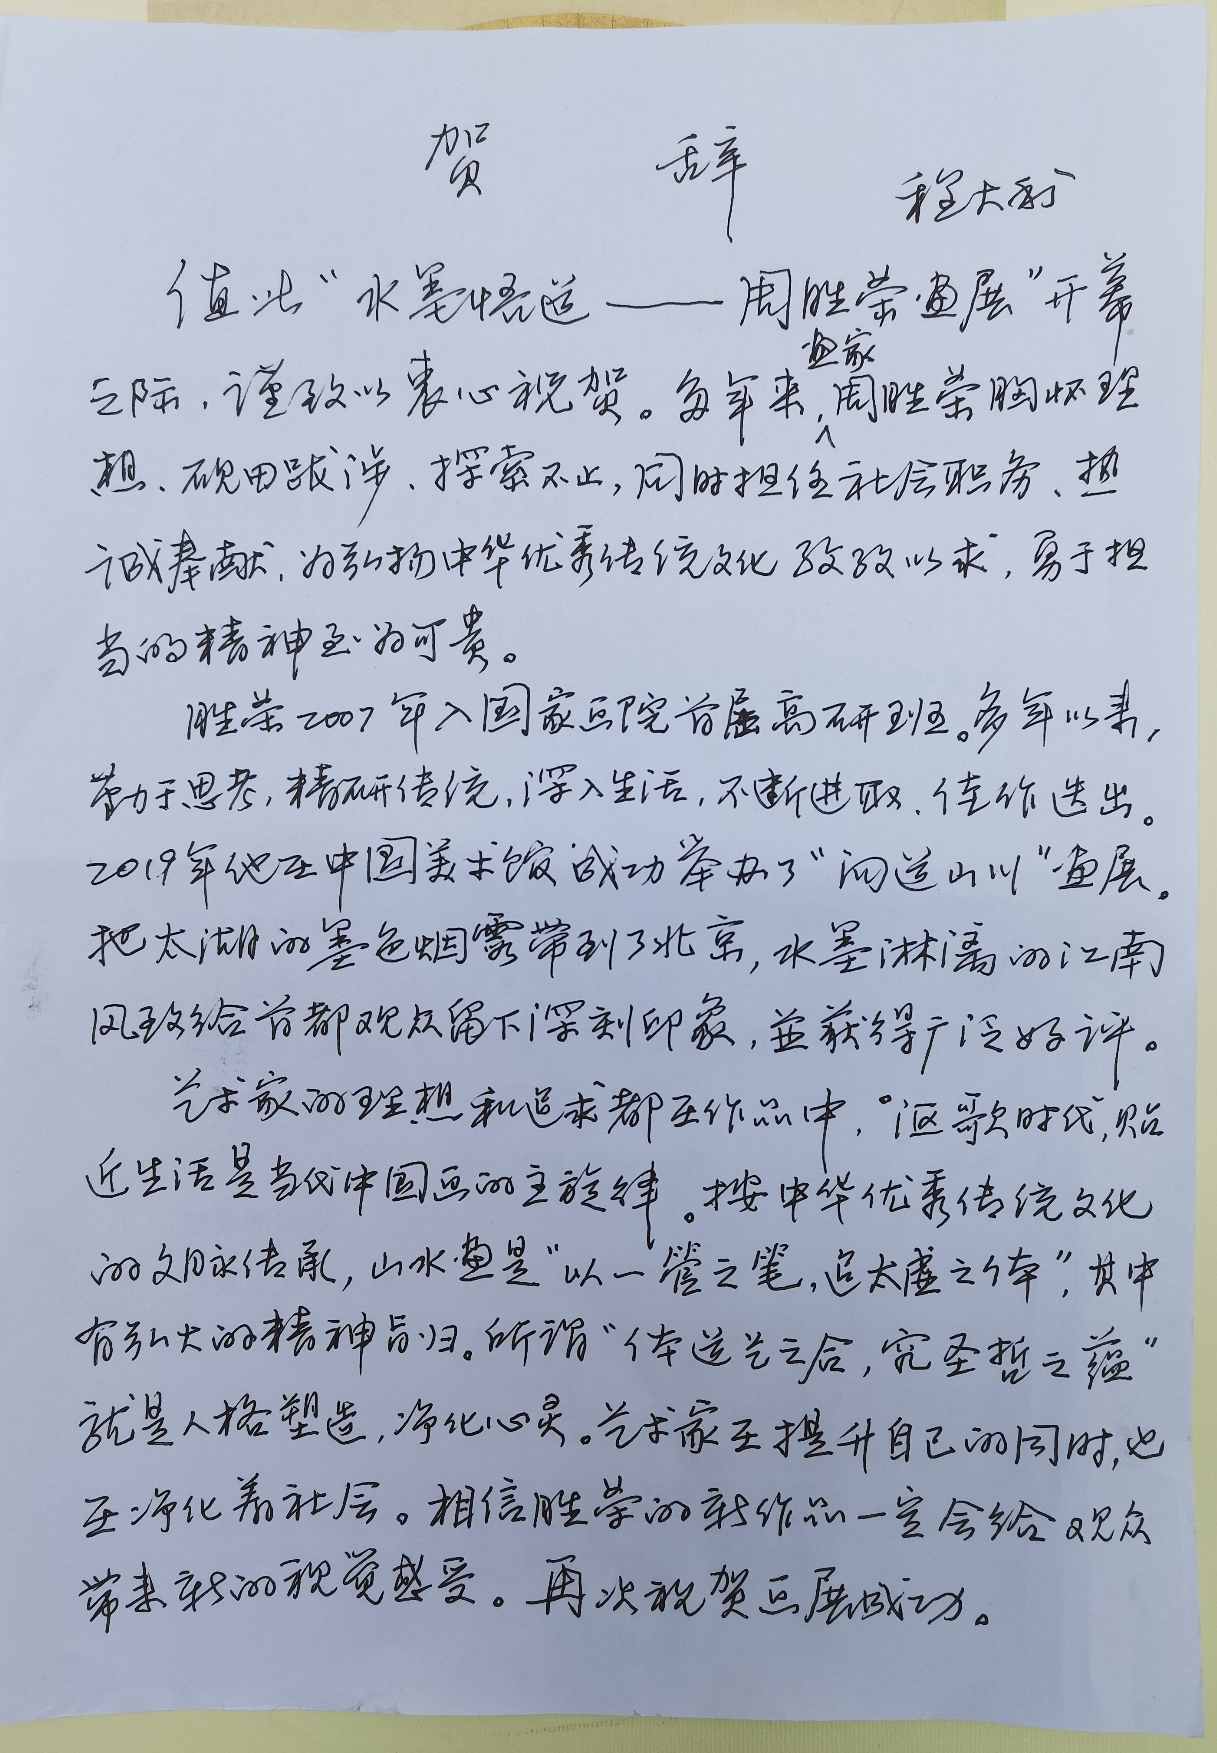 贺 辞
程大利
值此“水墨悟道——周胜荣画展”开幕
画家
之际，谨致以衷心祝贺。多年来，周胜荣胸怀理
想、砚田跋涉、探索不止，同时担任社会职务、热
诚奉献，为弘扬中华优秀传统文化孜孜以求，勇于担
当的精神至为可贵。
胜荣2007年入国家画院首届高研班。多年以来，
勤于思考，精研传统，深入生活，不断进取、佳作迭出。
2019年他在中国美术馆成功举办了“问道山川”画展。
把太湖的墨色烟霞带到了北京，水墨淋漓的江南
风致给首都观众留下深刻印象，并获得广泛好评。
艺术家的理想和追求都在作品中，讴歌时代，贴
近生活是当代中国画的主旋律。按中华优秀传统文化
的文脉传承，山水画是“以一管之笔，追太虚之体”，其中
有弘大的精神旨归。所谓“体道艺之合，究圣哲之蕴”
就是人格塑造，净化心灵。艺术家在提升自己的同时，也
在净化着社会。相信胜荣的新作品一定会给观众
带来新的视觉感受。再次祝贺画展成功。